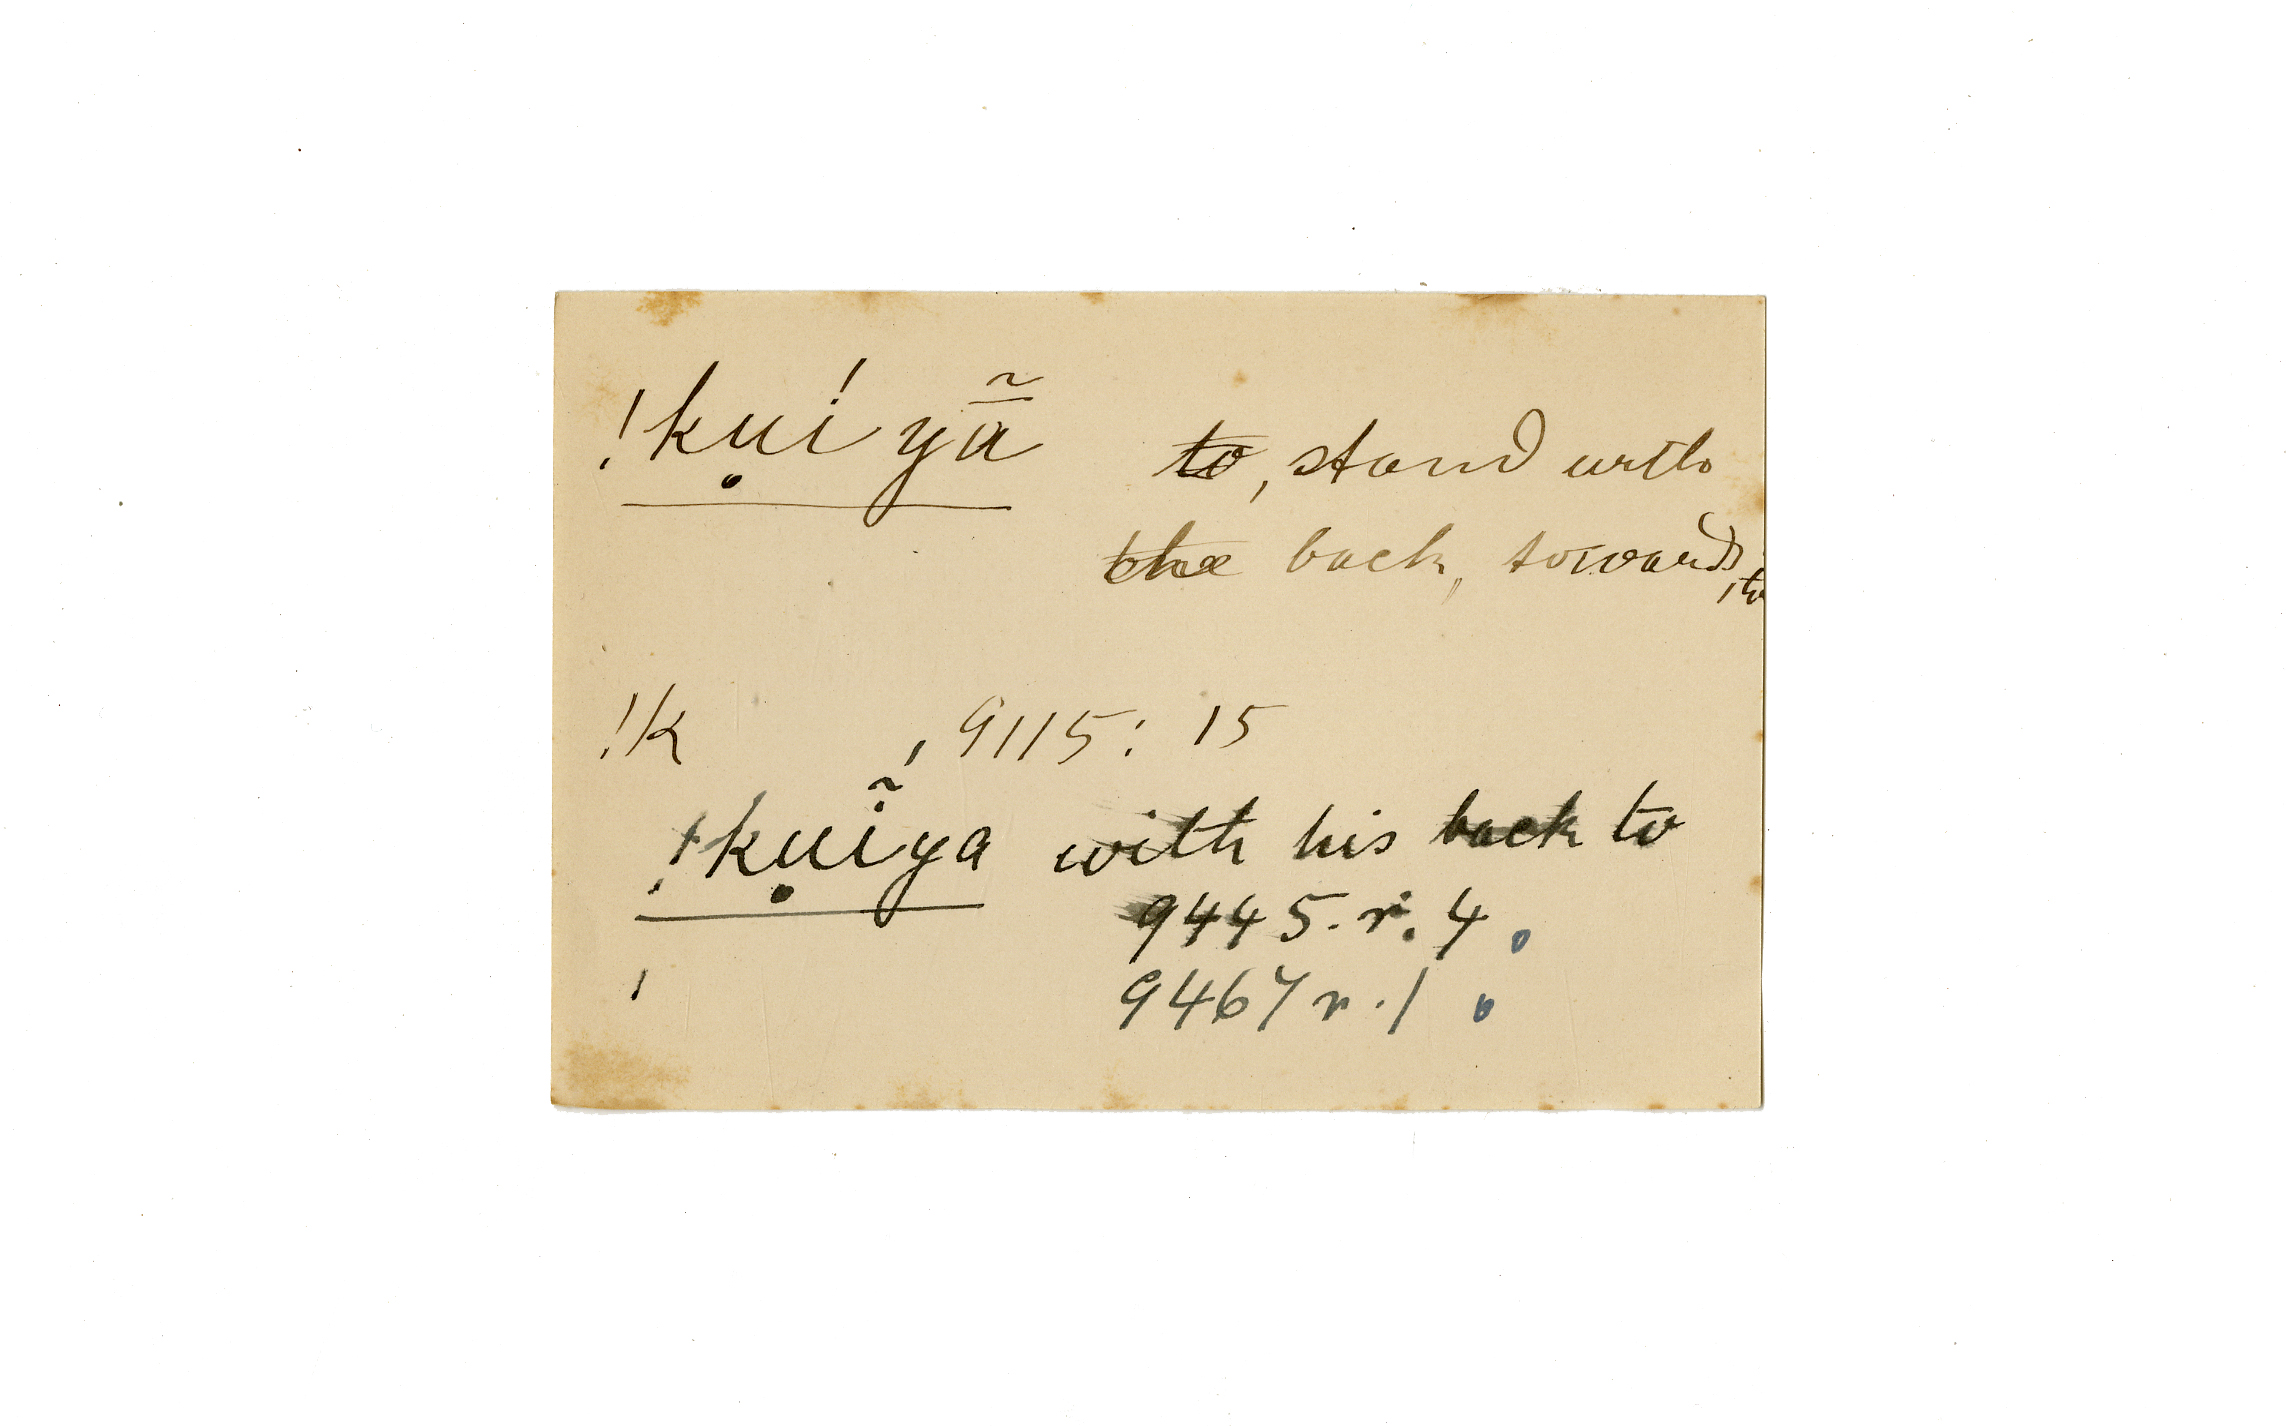 !kụi yã̄ to, stand with
the back, towards, to
!k , 9115: 15
!kụĩya with his back to
9445. r. 4.
9467 r. 1